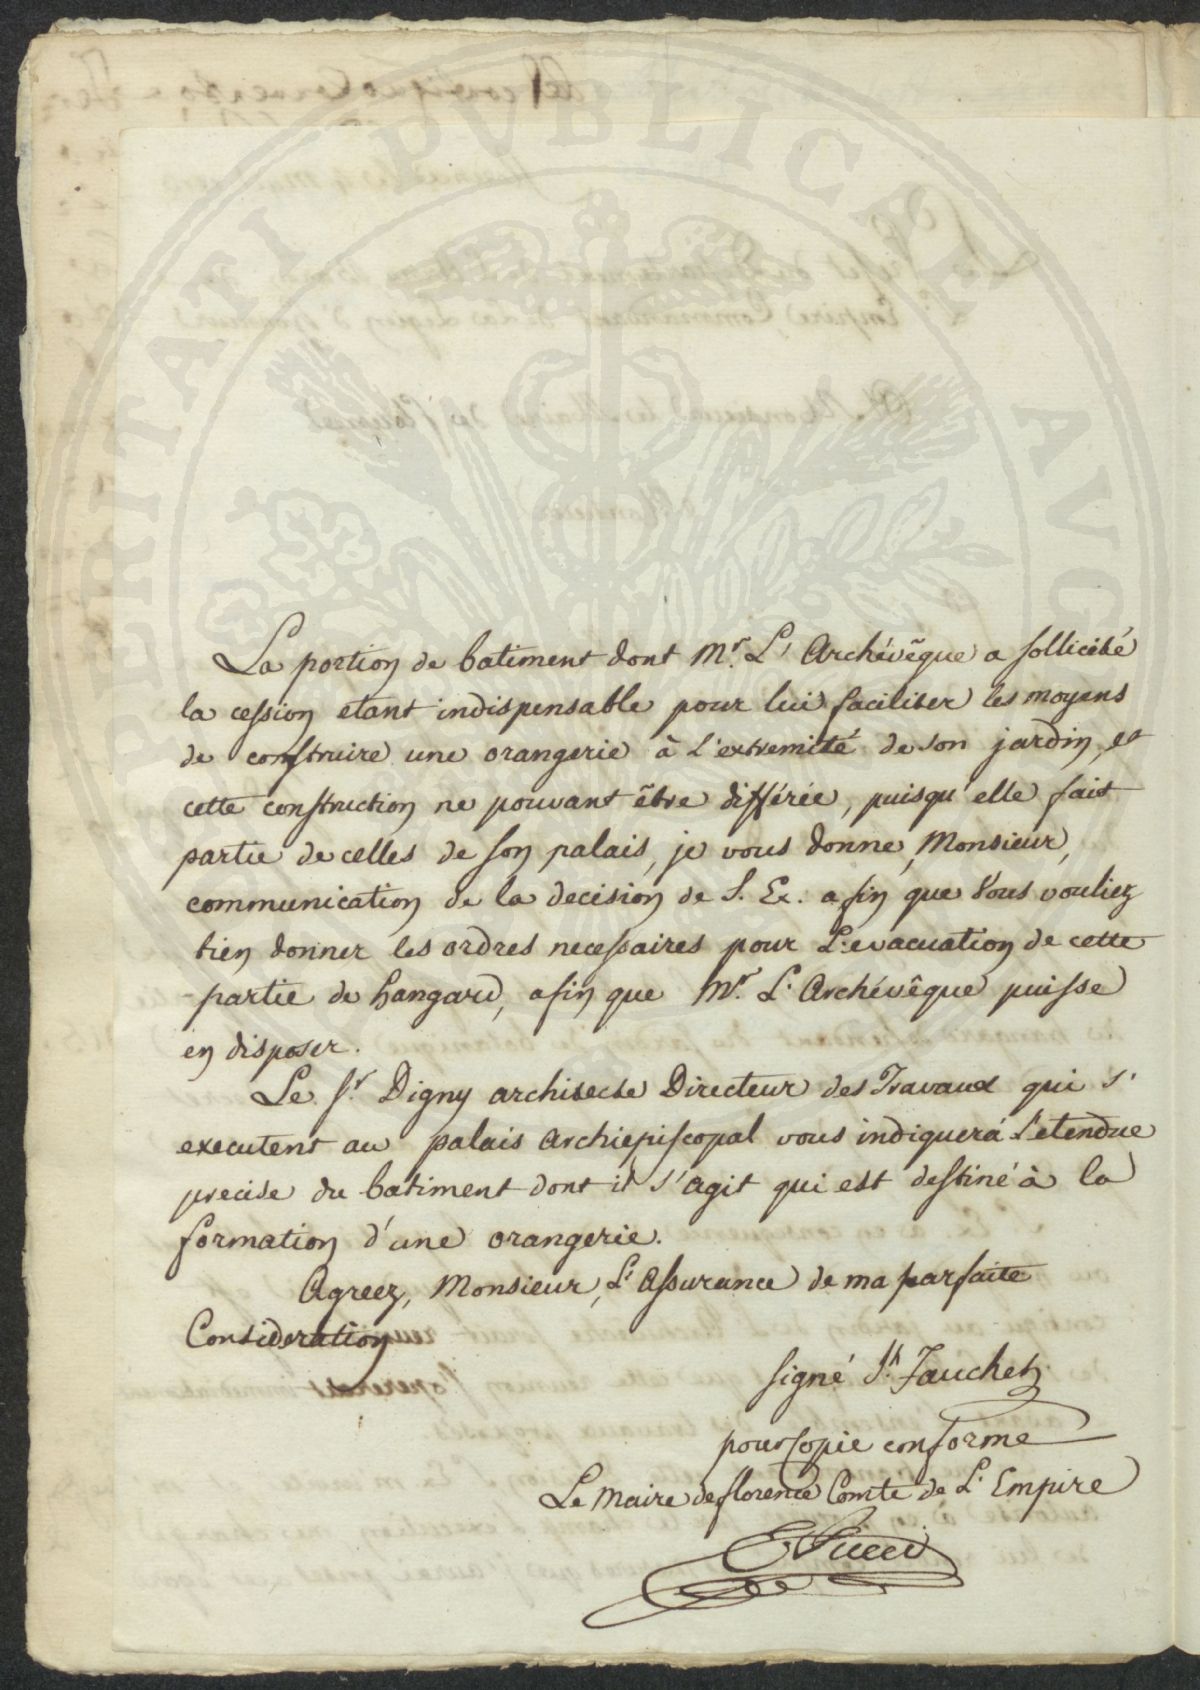 VERITATI PVBLICAE AVG
La portion de batiment dont Mr. L' Archévêque a sollicité
la cession etant indispensable pour lui faciliter les moyens
de construire une orangerie à l'extremité de son jardin, et
cette construction ne pouvant être différée, puisqu'elle fait
partie de celles de son palais, je vous donne, Monsieur,
communication de la decision de S. Ex. afin que Vous vouliez
bien donner les ordres necessaires pour L'evacuation de cette
partie de hangard, afin que Mr. L'Archévêque puisse
en disposer.
Le Sr. Digny architecte Directeur des Travaux qui s'
executent au palais Archiepiscopal vous indiquera L'etendue
precise du batiment dont il s'agit qui est destiné à la
formation d'une orangerie.
Agreez, Monsieur, L'Assurance de ma parfaite
Consideration
signé Jh. Fauchet
pour copie conforme
Le Maire de florence Comte de L'Empire
E Pucci